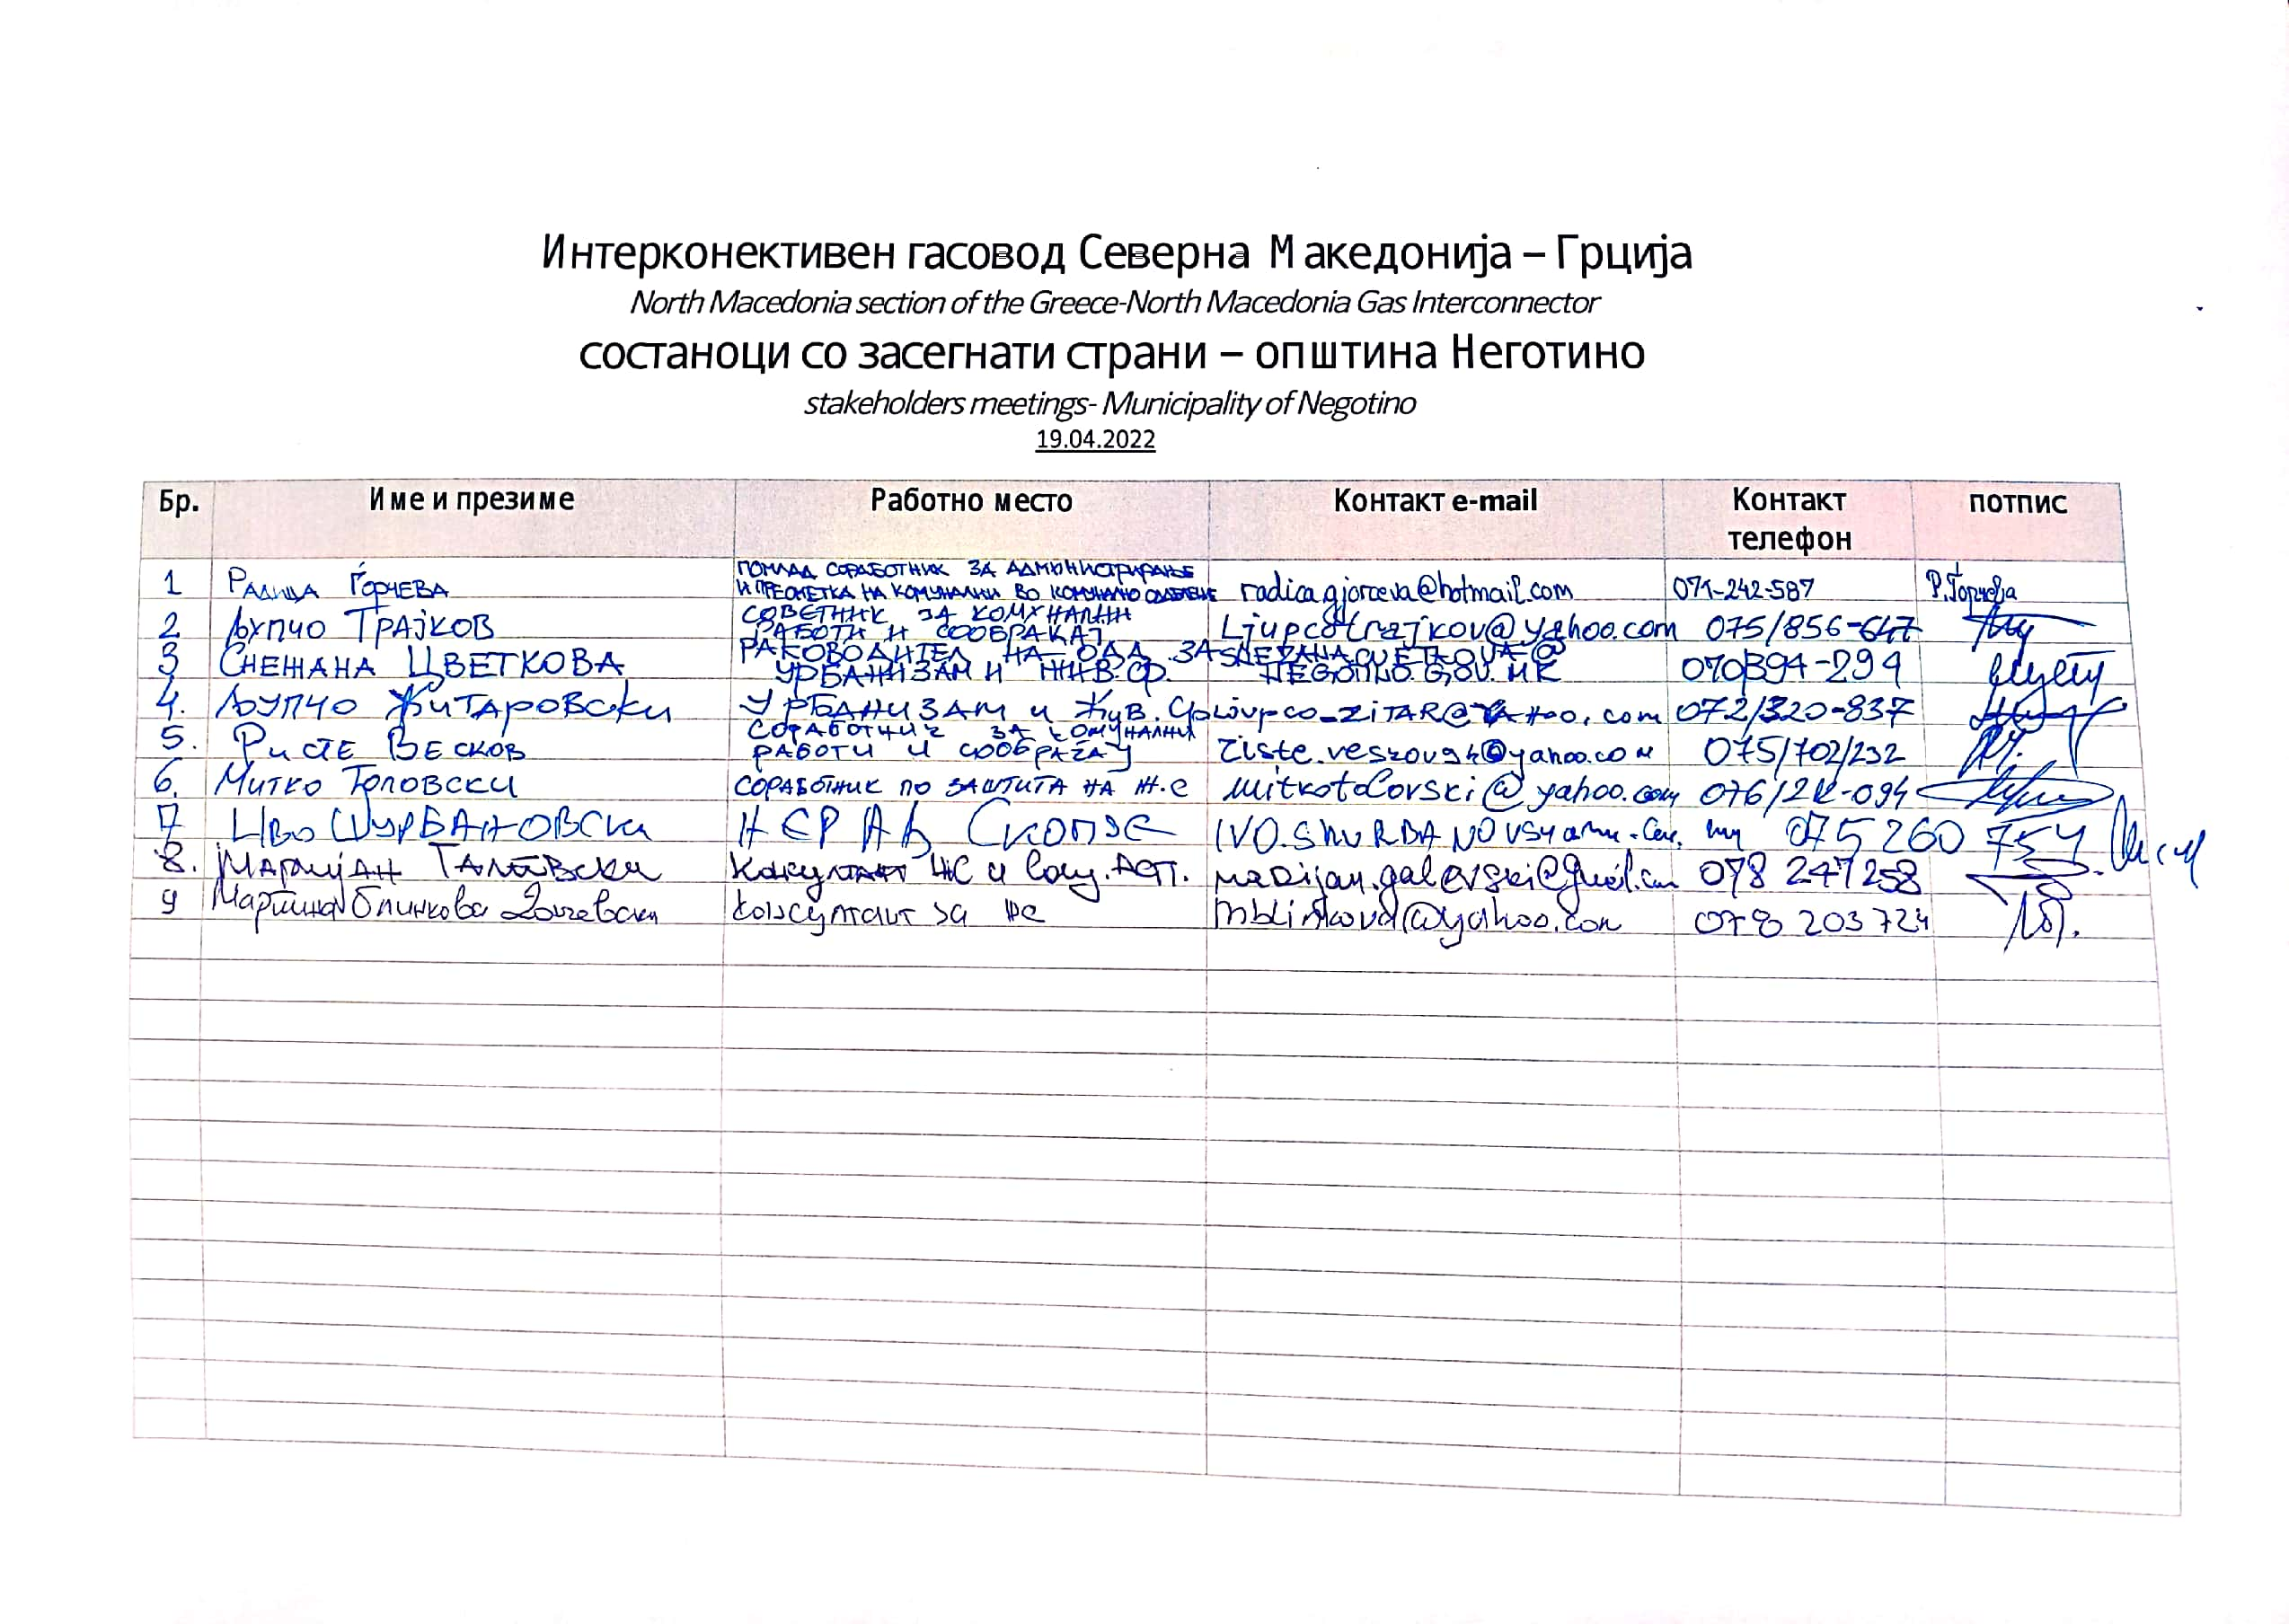 Интерконективен гасовод Северна Македонија – Грција
North Macedonia section of the Greece-North Macedonia Gas Interconnector
состаноци со засегнати страни – општина Неготино
stakeholders meetings- Municipality of Negotino
19.04.2022
Бр. Име и презиме Работно место Контакт e-mail Контакт телефон потпис
1 Радица Ѓорчева помлад соработник за администрирање и пресметка на комуналии во комунално radica.gjorceva@hotmail.com 071-242-587 Р.Ѓорчева
2 Љупчо Трајков советник за комунални работи и сообраќај Ljupcotrajkov@yahoo.com 075/856-647
3 Снежана Цветкова раководител на одд. за урбанизам и жив.ср. SNEZANACVETKOVA@NEGOTINO.GOV.MK 070394-299
4. Љупчо Житаровски урбанизам и жив. ср. 072/320-837
5. Ристе Весков соработник за комунални работи и сообраќај 075/702/232
6. Митко Толовски соработник по заштита на ж.с mitkotolovski@yahoo.com
7 Иво Шурбановски НЕР АД Скопје 075 260 754
8. Маријан Галевски Консултант ЖС и Соц. Асп. marijan.galevski@gmail.com 078 247258
9 Мартина Блинкова Дончевска консултант за жс mblinkova@yahoo.com 078 203 724